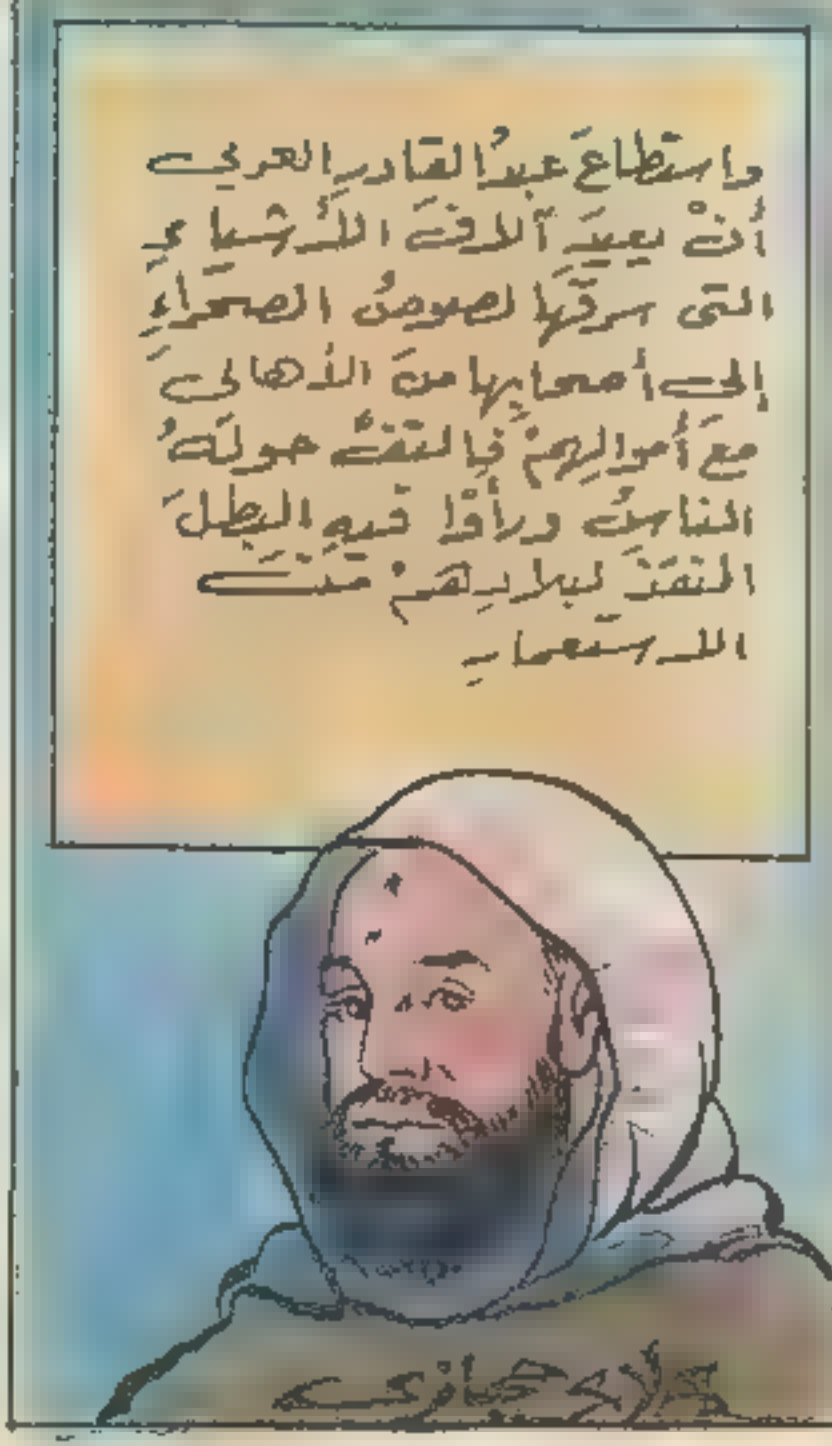 واستطاعَ عبدُ القادرِ العربي
أنْ يعيدَ آلافَ الأشياءِ
التي سرقَها لصوصُ الصحراءِ
إلى أصحابِها منَ الأهالي
معَ أموالِهمْ فالتفَّ حولَهُ
الناسُ ورأَوْا فيهِ البطلَ
المنقذَ لبلادِهمْ منَ
الاستعمارِ